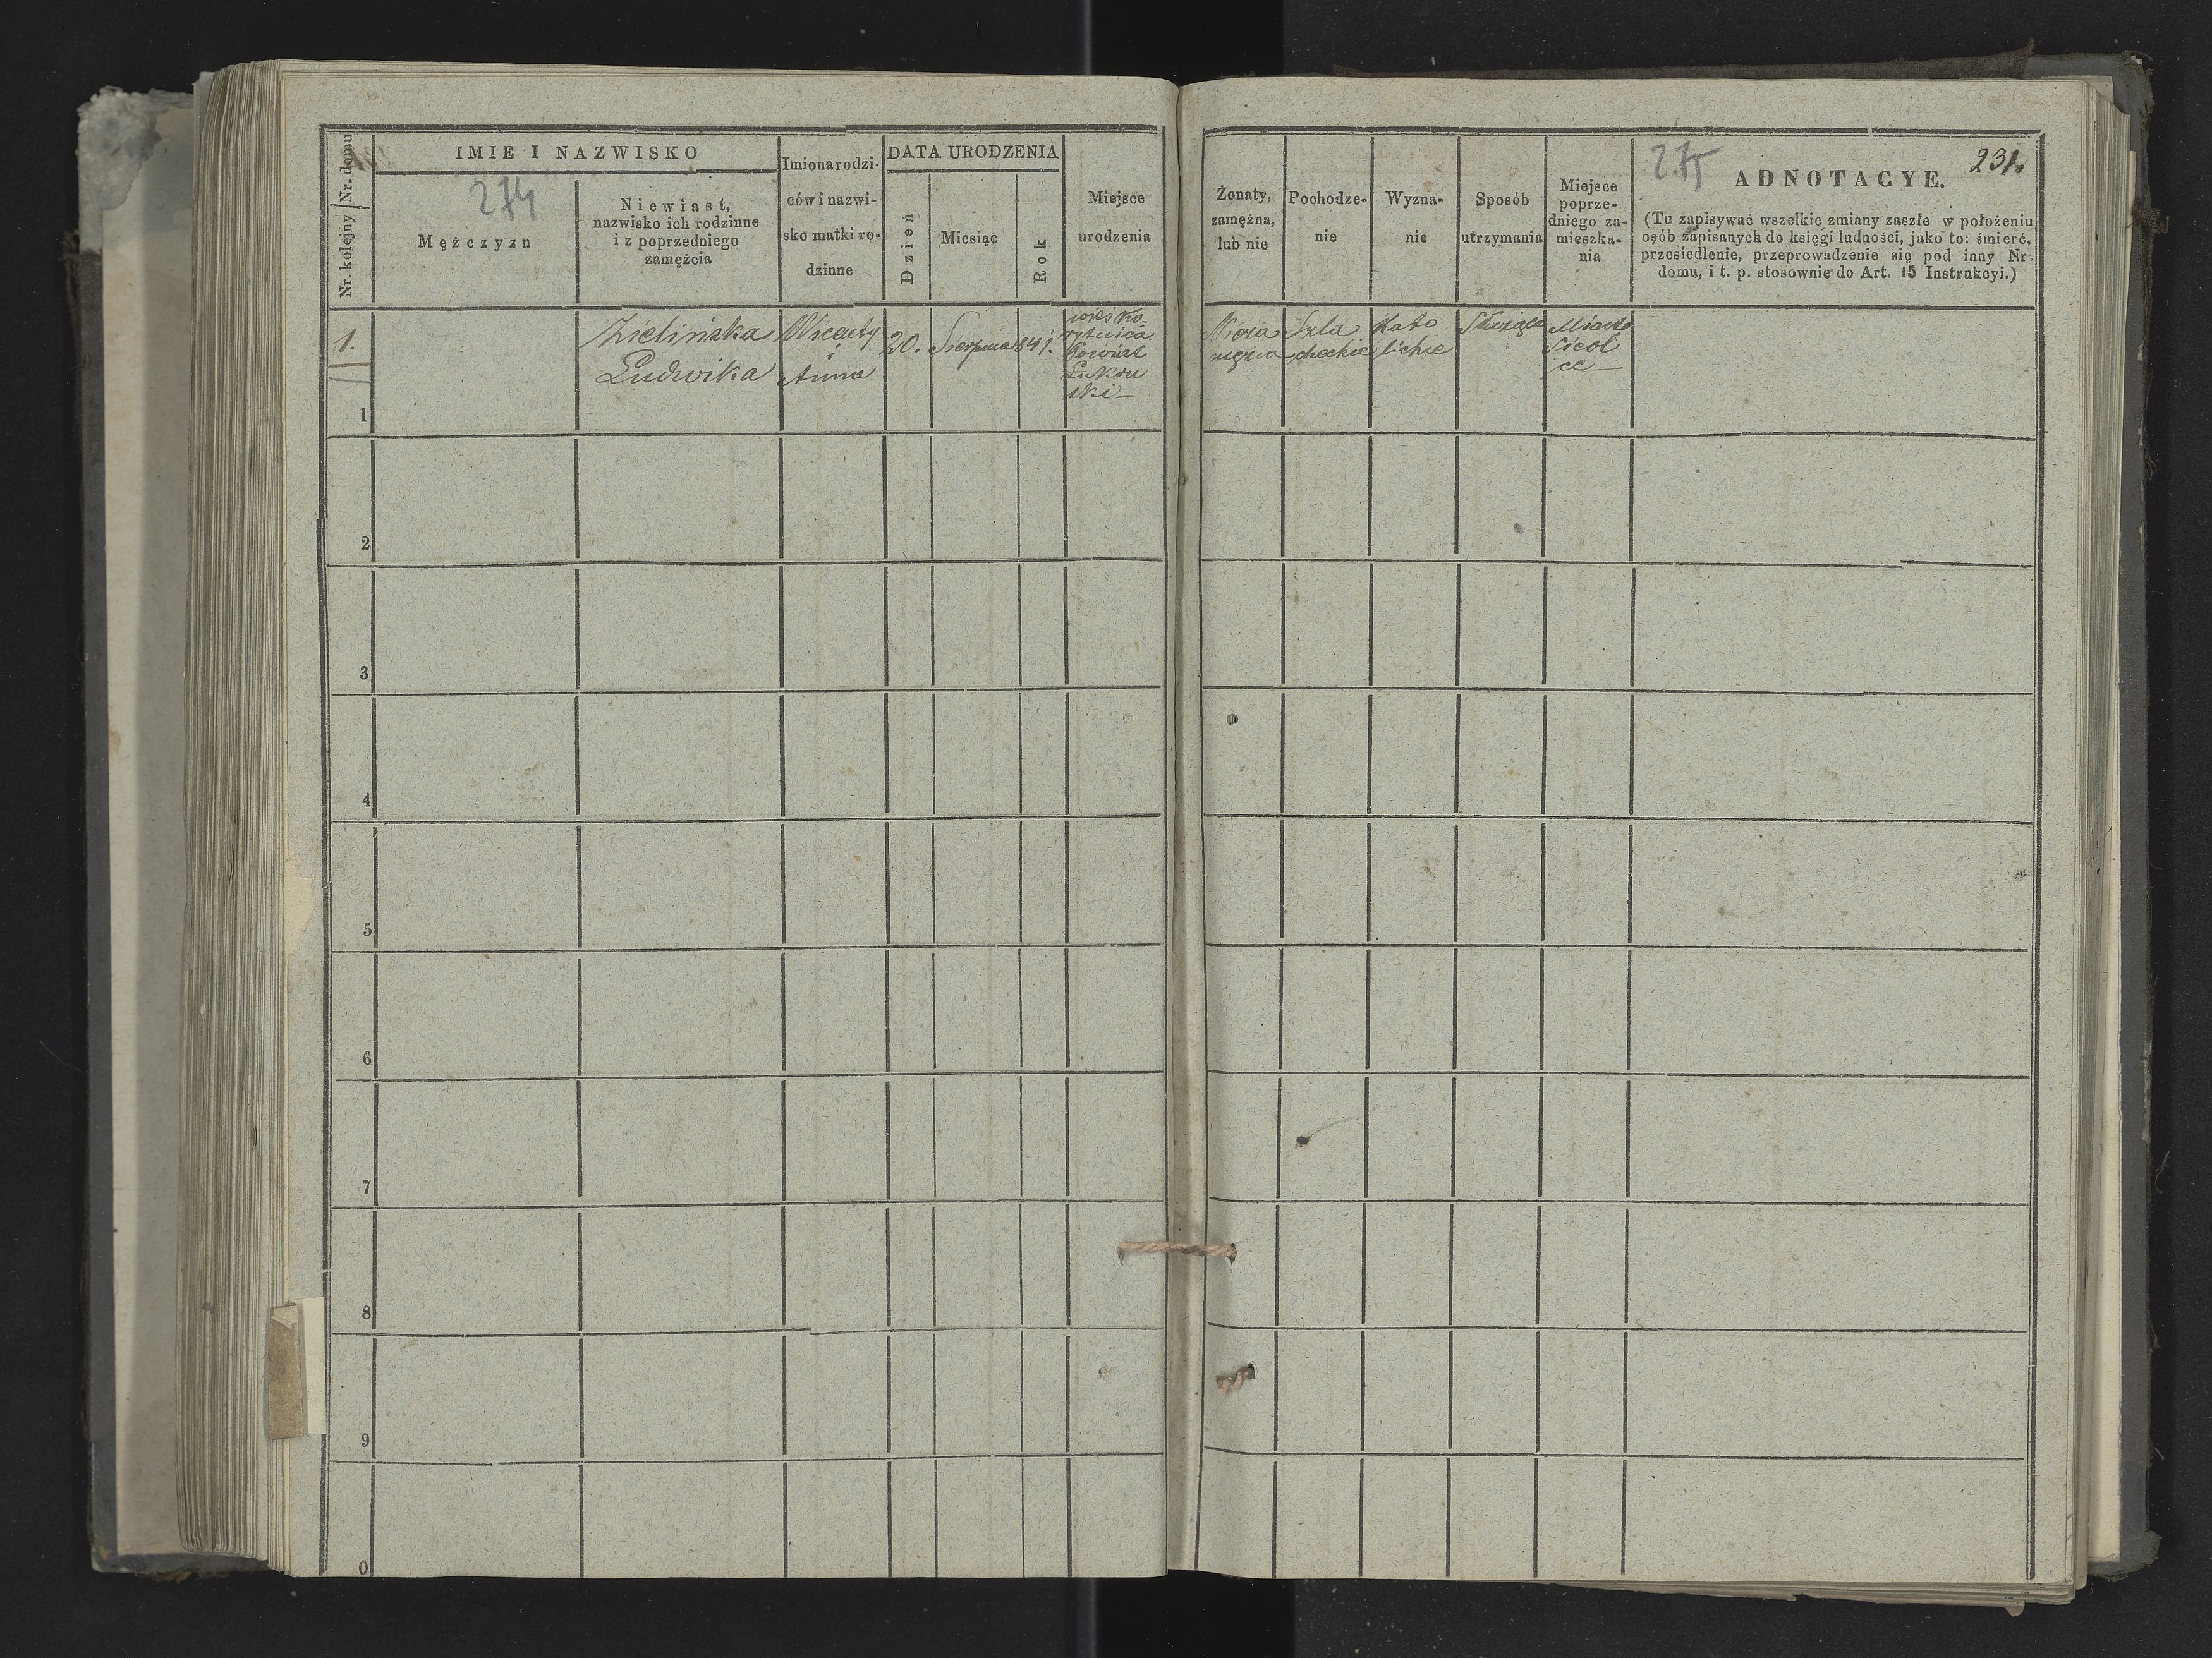 Nr. kolejny | Nr. domu
IMIE I NAZWISKO
274
Mężczyzn
Niewiast,
nazwisko ich rodzinne
i z poprzedniego
zamęźcia
Imiona rodzi-
ców i nazwi-
sko matki ro-
dzinne
DATA URODZENIA
Dzień
Miesiąc
Rok
Miejsce
urodzenia
Żonaty,
zamężna,
lub nie
Pochodze-
nie
Wyzna-
nie
Sposób
utrzymania
Miejsce
poprze-
dniego za-
mieszka-
nia
275
231.
ADNOTACYE.
(Tu zapisywać wszelkie zmiany zaszłe w położeniu
osób zapisanych do księgi ludności, jako to: śmierć,
przesiedlenie, przeprowadzenie się pod inny Nr.
domu, i t. p. stosownie do Art. 15 Instrukcyi.)
1.
1
Zielińska
Ludwika
Wicenty
i
Anna
20.
Sierpnia
841.
wieś Ko-
rytnica
Powiat
Łukow
ski
Nieza
mężna
Szla
checkie
Kato
lickie
Służąca
Miasto
Siedl
ce
2
3
4
5
6
7
8
9
0